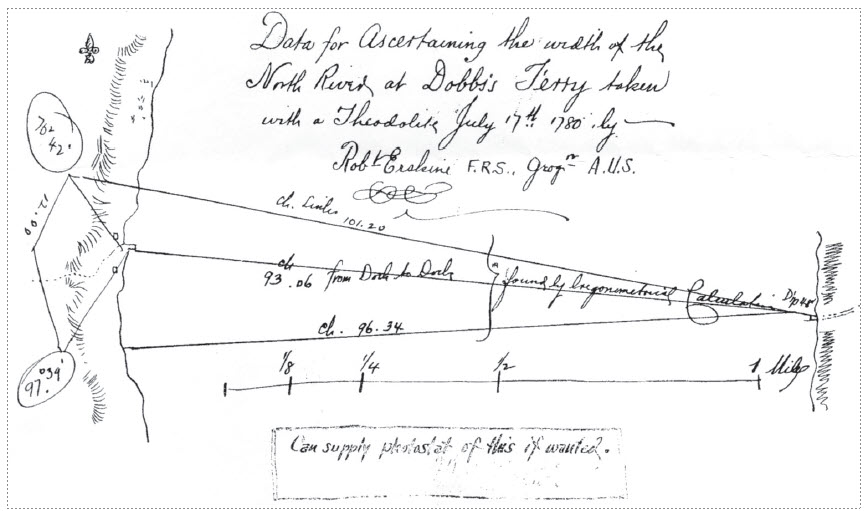 Data for Ascertaining the width of the
North River, at Dobbs's Ferry taken
with a Theodolite July 17th 1780 by
Robt Erskine F.R.S., Geogr A.U.S.
70°
42'
12.00
ch. Links
101.20
ch
93.06 from Dock to Dock
found by trigonometrical Calculation
ch. 96.34
97.°39'
1/8
1/4
1/2
1 Mile
Can supply photostat of this if wanted.